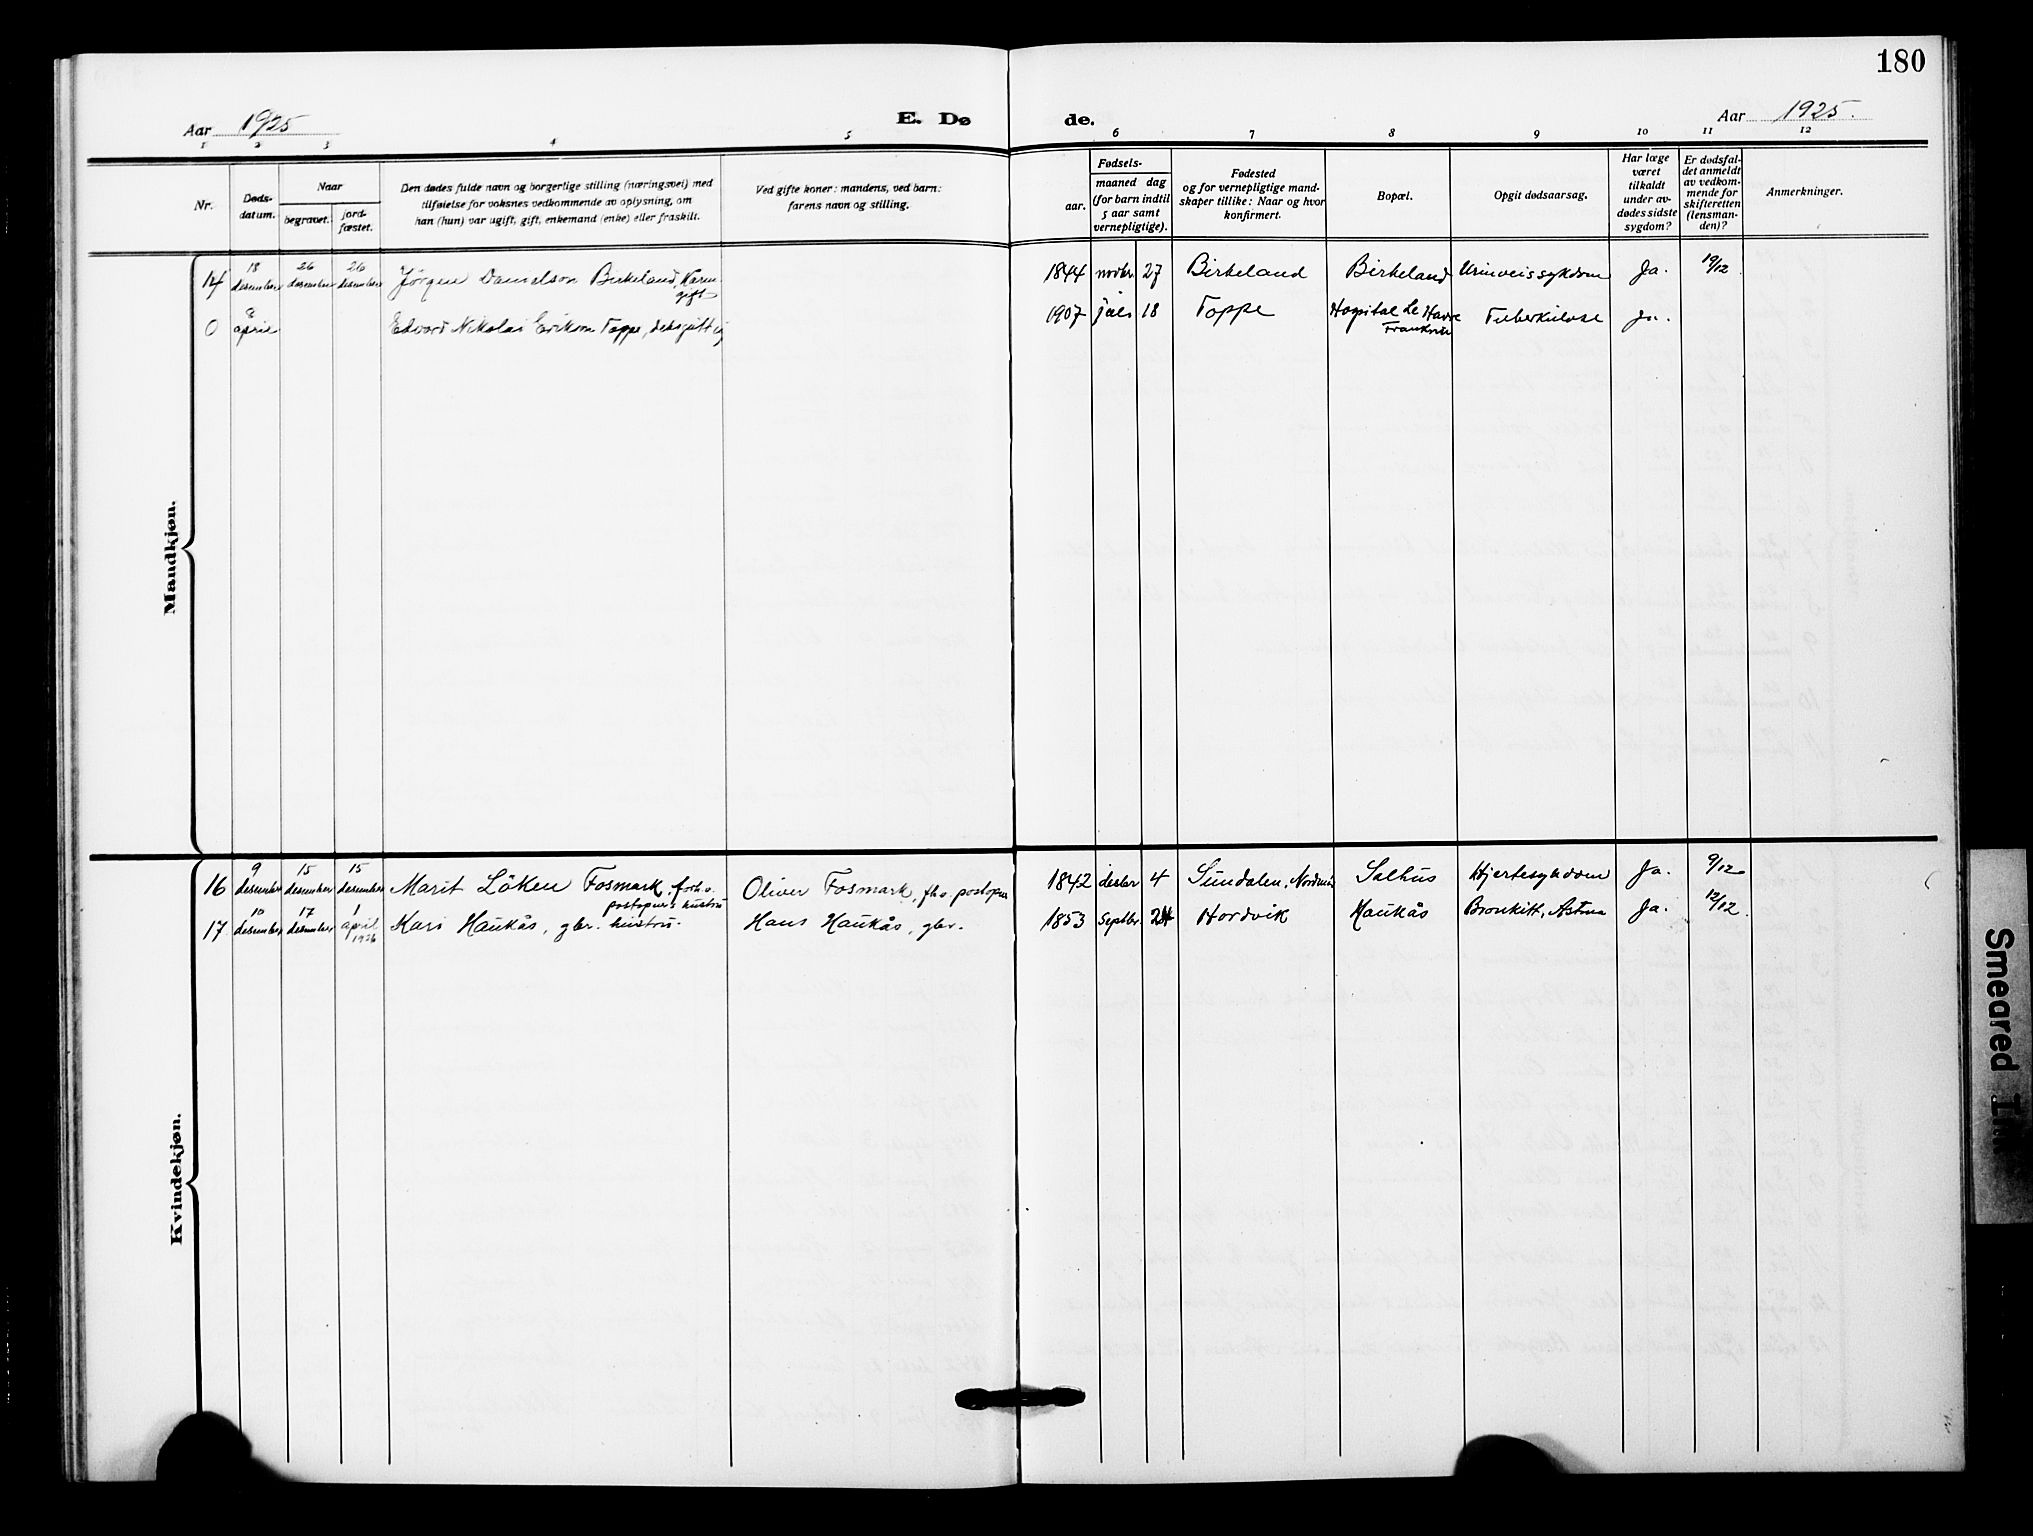 180
Aar 1925 E. Dø de. Aar 1925.
1 2 3 4 5 6 7 8 9 10 11 12
Nr.
Døds-
datum.
Naar
begravet.
jord-
fæstet.
Den dødes fulde navn og borgerlige stilling (næringsvei) med
tilføielse for voksnes vedkommende av oplysning, om
han (hun) var ugift, gift, enkemand (enke) eller fraskilt.
Ved gifte koner: mandens, ved barn:
farens navn og stilling.
Fødsels-
aar.
maaned dag
(for barn indtil
5 aar samt
vernepligtige).
Fødested
og for vernepligtige mand-
skaper tillike: Naar og hvor
konfirmert.
Bopæl.
Opgit dødsaarsag.
Har læge
været
tilkaldt
under av-
dødes sidste
sygdom?
Er dødsfal-
det anmeldt
av vedkom-
mende for
skifteretten
(lensman-
den)?
Anmerkninger.
Mandkjøn.
18 26 26
14 desember desember desember Jørgen Danielson Birkeland, Kårm. 1844 novbr 27 Birkeland Birkeland Urinveissykdom Ja. 19/12
gift
8
0 april Edvard Nikolai Erikson Toppe, 1907 juli 18 Toppe Hospital Le Havre Tuberkulose Ja.
Frankrike
Kvindekjøn.
9 15 15
16 desember desember desember Marit Löken Fosmark, forh.v. Oliver Fosmark, fhv postopns 1842 desbr 4 Sundalen, Nordmøre Salhus Hjertesykdom Ja. 9/12
postopns hustru
10 17 1
17. desember desember april Kari Haukås, gbr. hustru. Hans Haukås, gbr. 1853 septbr. 24 Hordvik Haukås Bronkitt, Astma Ja. 12/12
1926
Smeared